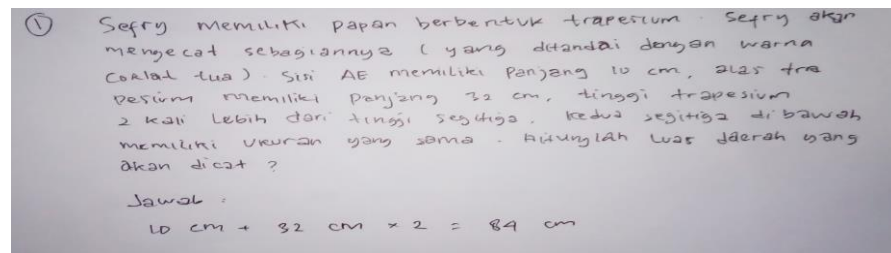 ① Sefry memiliki papan berbentuk trapesium. Sefry akan
mengecat sebagiannya (yang ditandai dengan warna
Coklat tua). Sisi AE memiliki panjang 10 cm, alas tra
pesium memiliki panjang 32 cm, tinggi trapesium
2 kali lebih dari tinggi segitiga. kedua segitiga dibawah
memiliki ukuran yang sama. Hitunglah luas daerah yang
akan dicat ?
Jawab :
10 cm + 32 cm × 2 = 84 cm